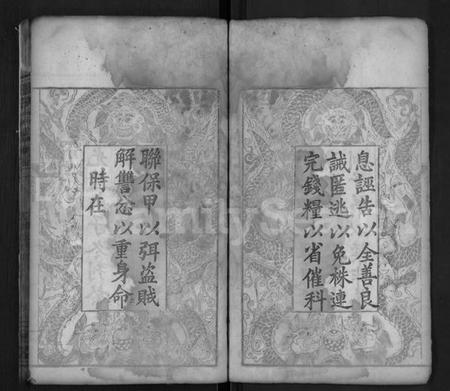 息誣告以全善良
誡匿逃以免株連
完錢糧以省催科
聯保甲以弭盜賊
解讐忿以重身命
時在
FamilySearch